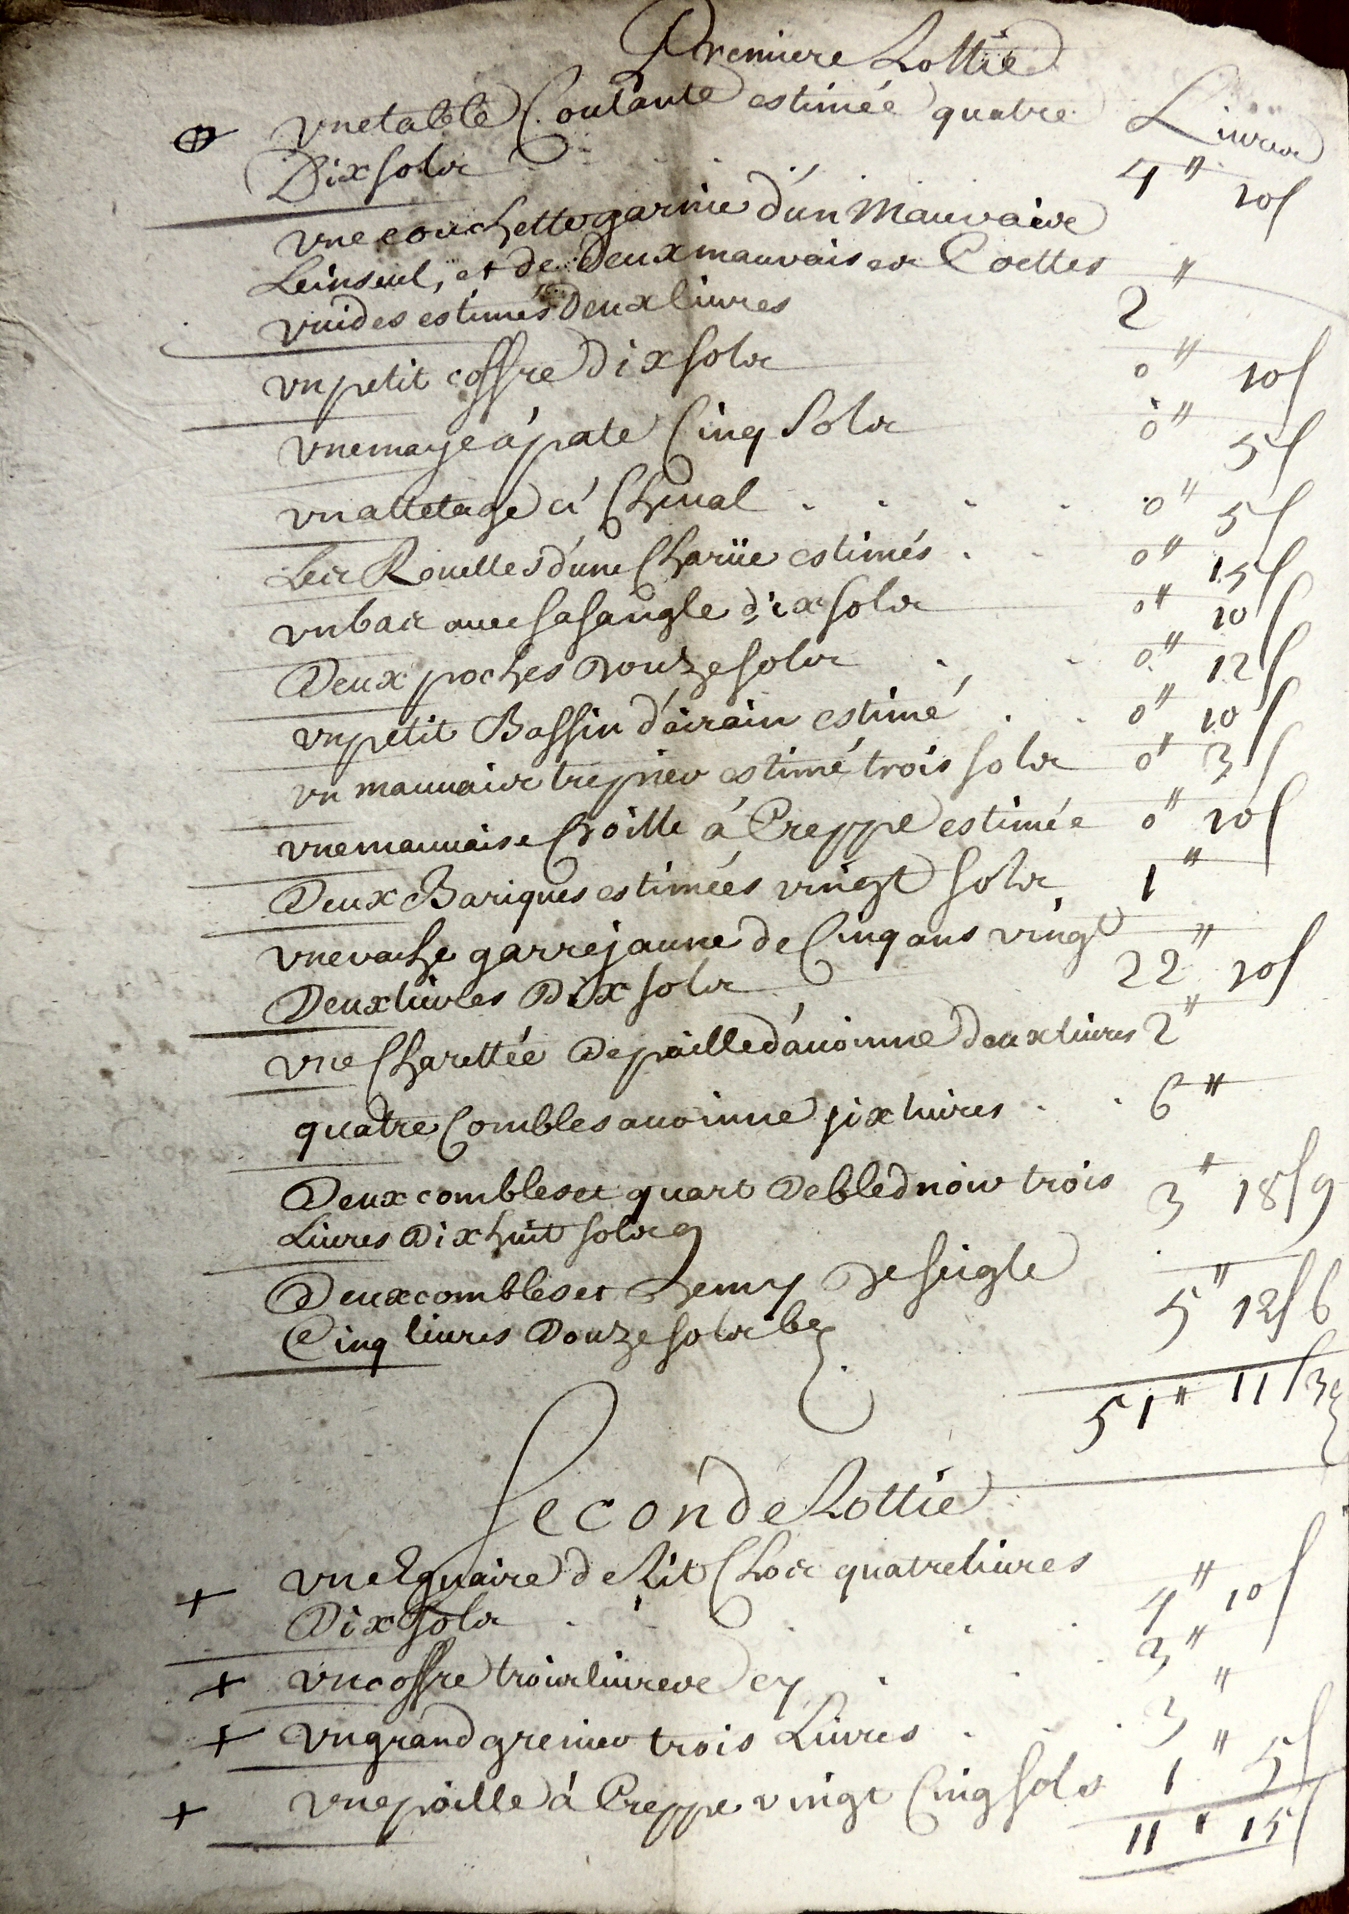 Premiere Lottie
vne table Coulante estimée quatre Livres
Dix sols 4" 10s
vne couchette garnie d'un Mauvais
Leinseul, et de Deux mauvaises Coettes "
vuides estimés Deux livres 2
vn petit coffre Dix sols 0" 10s
vne maye à pate Cinq Sols 0" 5s
vn attelage à Cheval 0" 5s
Les Rouelles d'une Charüe estimés 0" 15s
vn bas avec sa sangle dix sols 0" 10s
Deux poches Douze sols 0" 12s
vn petit Bassin d'airain estimé 0" 10s
vn mauvais trepiev estimé trois sols 0" 3s
vne mauvaise poille à Creppe estimée 0" 10s
Deux Bariques estimées vingt sols 1"
vne vache garre jaune de Cinq ans vingt
Deux livres Dix sols 22" 10s
vne Charettée De paille d'avoinne deux livres 2"
quatre Combles avoinne six livres 6"
Deux combles et quart De bled noir trois 3" 18s 9
Livres Dix huit sols 9
Deux combles et Demy De seigle
Cinq livres Douze sols 6 5" 12s 6
51" 11s 3
Seconde Lottie
+ vne Equaire de Lit Clos quatre livres
Dix sols 4" 10s
+ vn coffre trois livres cy 3"
+ vn grand grenier trois Livres 3"
+ vne poille à Creppe vingt Cinq sols 1" 5s
11" 15s